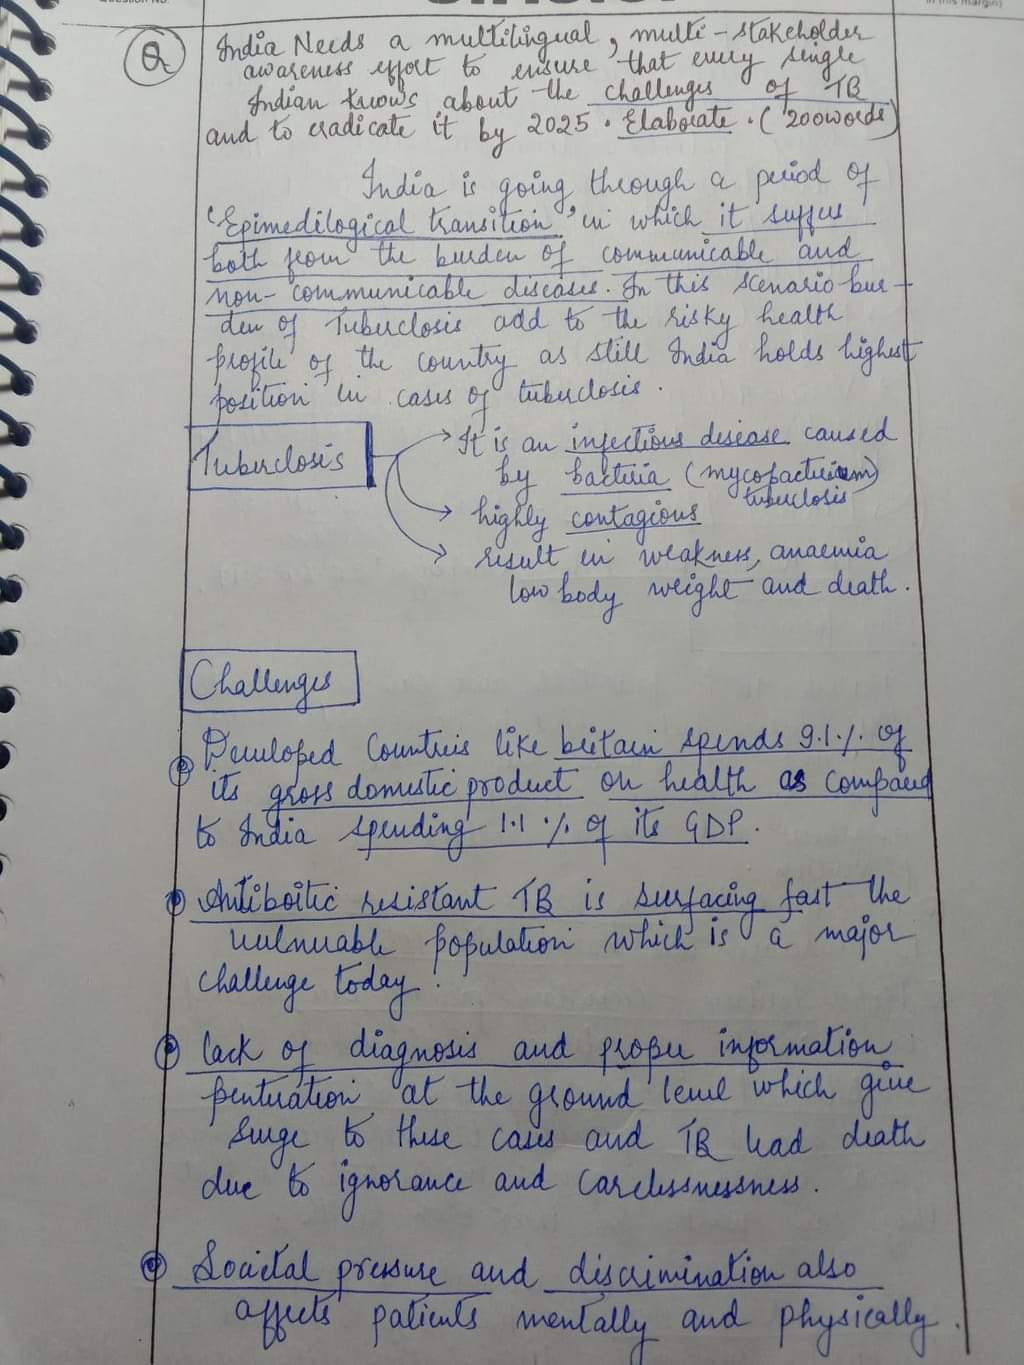 Question No.
in this margin)
Q
India Needs a multilingual, multi-stakeholder
awareness effort to ensure that every single
Indian knows about the challenges of TB
and to eradicate it by 2025. Elaborate. (200words)
India is going through a period of
'Epimedilogical transition' in which it suffers
both from the burden of communicable and
non-communicable diseases. In this scenario bur-
den of Tuberclosis add to the risky health
profile of the country as still India holds highest
position in cases of tuberclosis.
Tuberclosis
It is an infectious disease caused
by bacteria (mycobacterium)
tuberclosis
highly contagious
result in weakness, anaemia
low body weight and death.
Challenges
Developed Countries like britain spends 9.1% of
its gross domestic product on health as compared
to India spending 1.1% of its GDP.
Antiboitic resistant TB is surfacing fast the
vulnerable population which is a major
challenge today.
lack of diagnosis and proper information
pentration at the ground level which give
surge to these cases and TB lead death
due to ignorance and carelessnessness.
Societal pressure and discrimination also
affects patients mentally and physically.